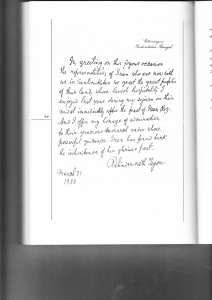 Uttarayan
Santiniketan, Bengal
In greeting on this joyous occasion
the representatives of Iran who are now with
us in Santiniketan we greet the great peoples
of their land, whose lavish hospitality I
enjoyed last year during my sojourn in their
midst immediately after the feast of
And I offer my homage of admiration
to their gracious Monarch under whose
powerful guidance Iran has found back
the inheritance of her glorious past.
Rabindranath Tagore
March 21
1933